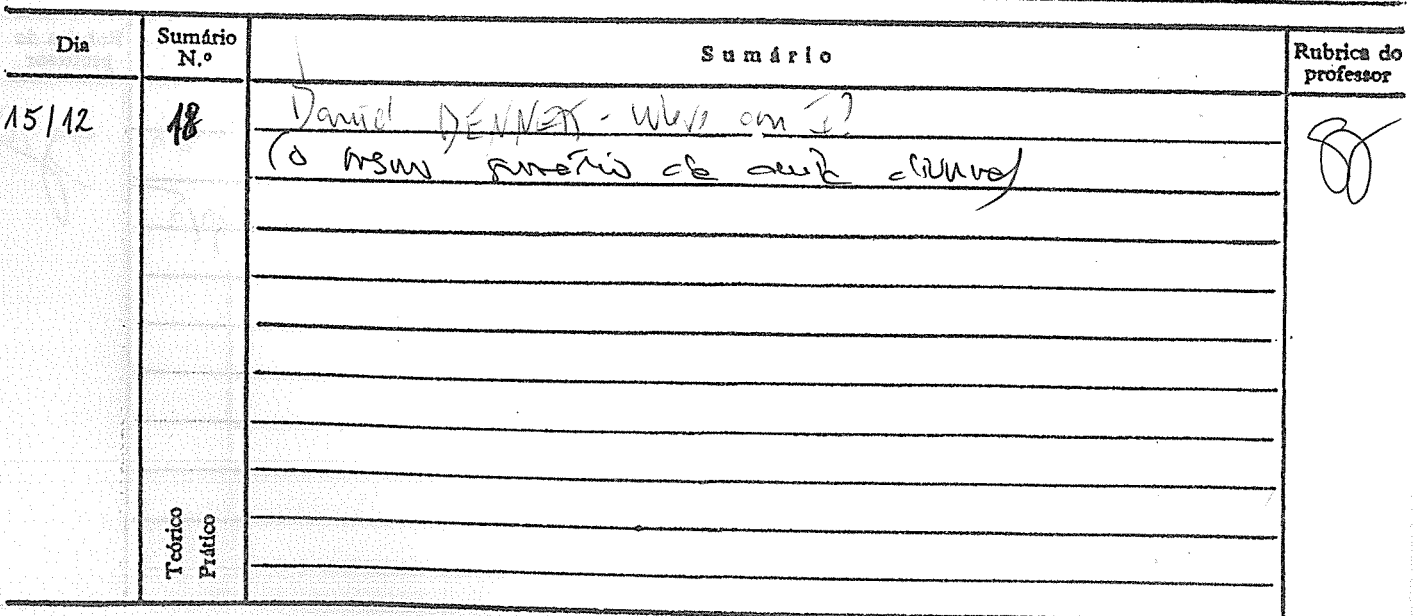 Dia Sumário N.º Sumário Rubrica do professor
15/12 18 Daniel DENNETT - Where am I?
(o mesmo sumário da aula diurna)
Teórico
Prático